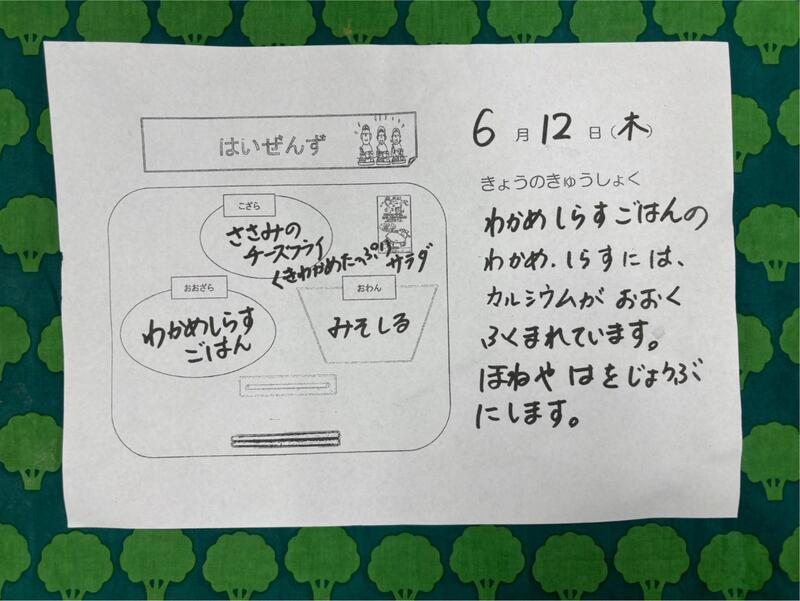 はいぜんず
こざら
ささみの
チーズフライ
くきわかめたっぷり
サラダ
おおざら
わかめしらす
ごはん
おわん
みそしる
6月12日(木)
きょうのきゅうしょく
わかめしらすごはんの
わかめ.しらすには、
カルシウムがおおく
ふくまれています。
ほねやはをじょうぶ
にします。